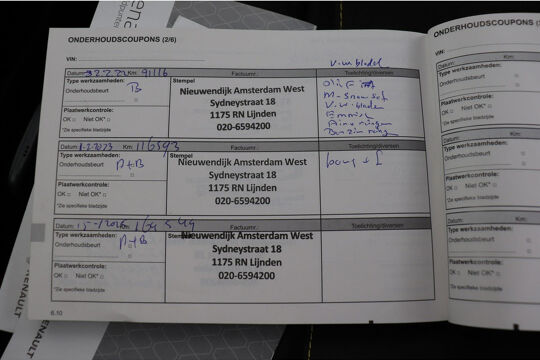 ONDERHOUDSCOUPONS (2/6)
VIN:
v.w bladen
Datum: Km: 91116 Factuurnr.: Toelichting/diversen
Type werkzaamheden:
Onderhoudsbeurt B
Plaatwerkcontrole:
OK Niet OK*
*Zie specifieke bladzijde
Stempel
Nieuwendijk Amsterdam West
Sydneystraat 18
1175 RN Lijnden
020-6594200
V.W. bladen
Datum: 1-2-2023 Km: 116593 Factuurnr.: Toelichting/diversen
Type werkzaamheden:
Onderhoudsbeurt A+B
Plaatwerkcontrole:
OK Niet OK*
*Zie specifieke bladzijde
Stempel
Nieuwendijk Amsterdam West
Sydneystraat 18
1175 RN Lijnden
020-6594200
Datum: Factuurnr.: Toelichting/diversen
Type werkzaamheden:
Onderhoudsbeurt A+B
Plaatwerkcontrole:
OK Niet OK*
*Zie specifieke bladzijde
Stempel
Nieuwendijk Amsterdam West
Sydneystraat 18
1175 RN Lijnden
020-6594200
6.10
ONDERHOUDSCOUPONS
VIN:
Datum: Km:
Type werkzaamheden:
Onderhoudsbeurt
Plaatwerkcontrole:
OK Niet OK*
*Zie specifieke bladzijde
Datum: Km:
Type werkzaamheden:
Onderhoudsbeurt
Plaatwerkcontrole:
OK Niet OK*
*Zie specifieke bladzijde
Datum: Km:
Type werkzaamheden:
Onderhoudsbeurt
Plaatwerkcontrole:
OK Niet OK*
RENAULT
RENAULT